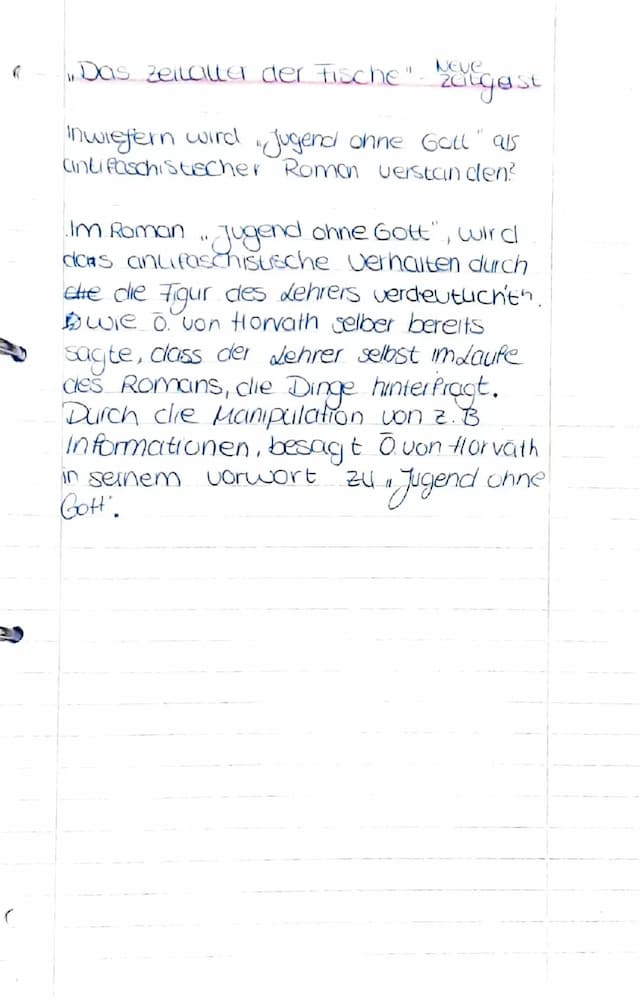 „Das Zeitalter der Fische" - Neue Zeitgeist
Inwiefern wird „Jugend ohne Gott" als
antifaschistischer Roman verstanden?
Im Roman „Jugend ohne Gott", wird
das antifaschistische Verhalten durch
die die Figur des Lehrers verdeutlicht.
wie Ö. von Horvath selber bereits
sagte, dass der Lehrer selbst im Laufe
des Romans, die Dinge hinterfragt.
Durch die Manipulation von z.B
Informationen, besagt Ö. von Horvath
in seinem vorwort zu „Jugend ohne
Gott".